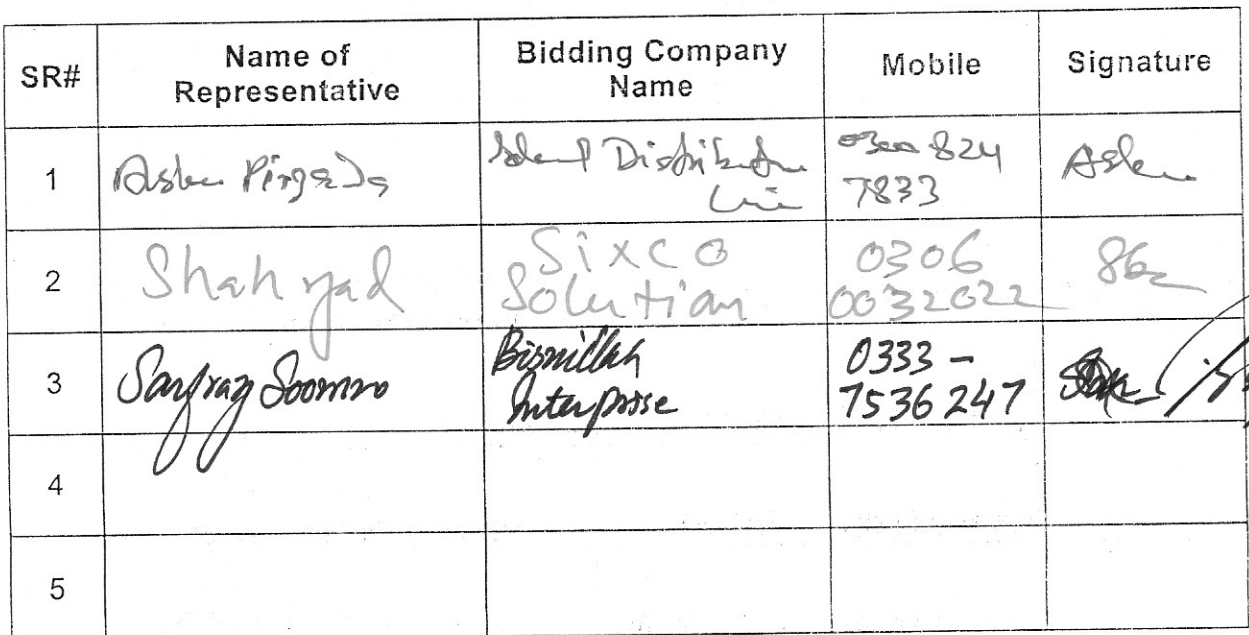 SR# Name of Representative Bidding Company Name Mobile Signature
1 Pirzada Distribution 0300 824
7833
2 Shahzad Sixco 0306
Solution 0032022
3 Sarfraz Soomro Bismillah 0333 -
Interprise 7536247
4
5